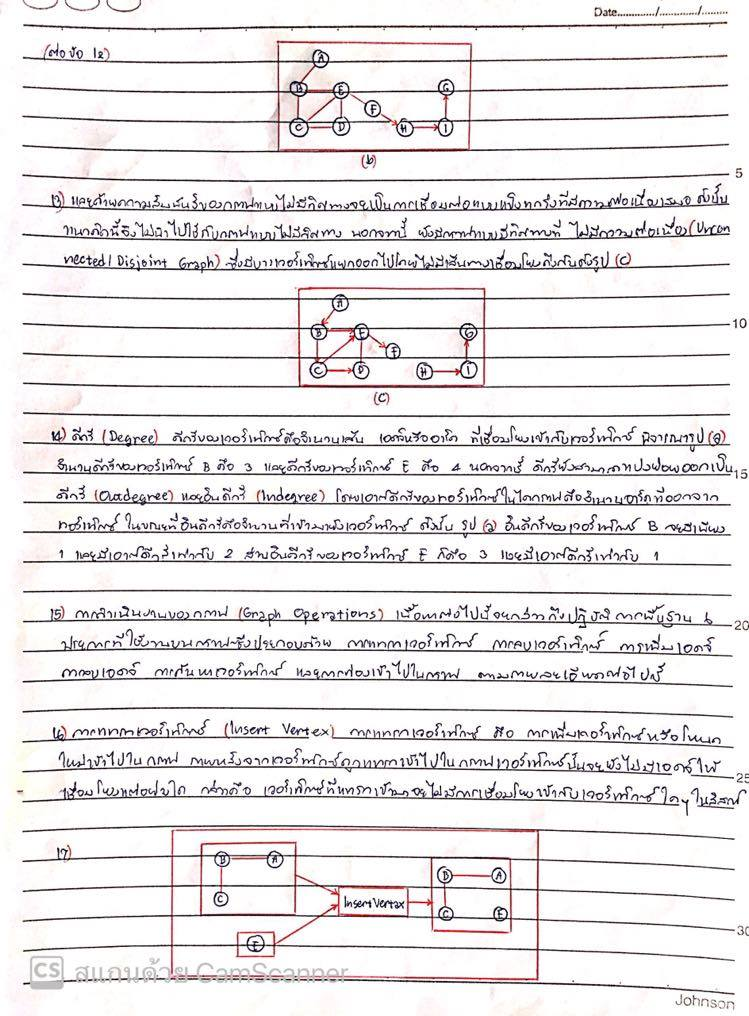 Date............/............/............
(ต่อข้อ 12)
A
B E G
F
C D H I
(b)
5
13) และด้วยความสัมพันธ์ของกราฟแบบไม่มีทิศทางจะเป็นการเชื่อมต่อแบบแข็งแกร่งที่มีความต่อเนื่องเสมอ ดังนั้น
แนวคิดนี้จึงไม่นำไปใช้กับกราฟแบบไม่มีทิศทาง นอกจากนี้ ยังมีกราฟแบบมีทิศทางที่ ไม่มีความต่อเนื่อง (Uncon
nected/Disjoint Graph) ซึ่งมีบางเวอร์เท็กซ์แยกออกไปโดยไม่มีเส้นทางเชื่อมโยงถึงกันดังรูป (C)
A
10
B E G
F
C D H I
(C)
14) ดีกรี (Degree) ดีกรีของเวอร์เท็กซ์คือจำนวนเส้น เอดจ์หรืออาร์ค ที่เชื่อมโยงเข้ากับเวอร์เท็กซ์ พิจารณารูป (a)
จำนวนดีกรีของเวอร์เท็กซ์ B คือ 3 และดีกรีของเวอร์เท็กซ์ E คือ 4 นอกจากนี้ ดีกรียังสามารถแบ่งย่อยออกเป็น
15
ดีกรี (Outdegree) และอินดีกรี (Indegree) โดยเอาต์ดีกรีของเวอร์เท็กซ์ในไดกราฟคือจำนวนอาร์คที่ออกจาก
เวอร์เท็กซ์ ในขณะที่อินดีกรีคือจำนวนที่เข้ามายังเวอร์เท็กซ์ ดังนั้น รูป (a) อินดีกรีของเวอร์เท็กซ์ B จะมีเพียง
1 และมีเอาต์ดีกรีเท่ากับ 2 ส่วนอินดีกรีของเวอร์เท็กซ์ E ก็คือ 3 และมีเอาต์ดีกรีเท่ากับ 1
15) การดำเนินงานของกราฟ (Graph Operations) เนื้อหาต่อไปนี้จะกล่าวถึงปฏิบัติการพื้นฐาน 6
20
ประการที่ใช้งานบนกราฟซึ่งประกอบด้วย การแทรกเวอร์เท็กซ์ การลบเวอร์เท็กซ์ การเพิ่มเอดจ์
การลบเอดจ์ การค้นหาเวอร์เท็กซ์ และการท่องเข้าไปในกราฟ ตามรายละเอียดต่อไปนี้
16) การแทรกเวอร์เท็กซ์ (Insert Vertex) การแทรกเวอร์เท็กซ์ คือ การเพิ่มเวอร์เท็กซ์หรือโหนด
ใหม่เข้าไปในกราฟ ภายหลังจากเวอร์เท็กซ์ถูกแทรกเข้าไปในกราฟเวอร์เท็กซ์นั้นจะยังไม่มีเอดจ์ให้
25
เชื่อมโยงแต่อย่างใด กล่าวคือ เวอร์เท็กซ์ที่แทรกเข้ามาจะไม่มีการเชื่อมโยงเข้ากับเวอร์เท็กซ์ใดๆ
17)
B A
C
E
Insert Vertax
B A
C E
30
CS สแกนด้วย CamScanner
Johnson